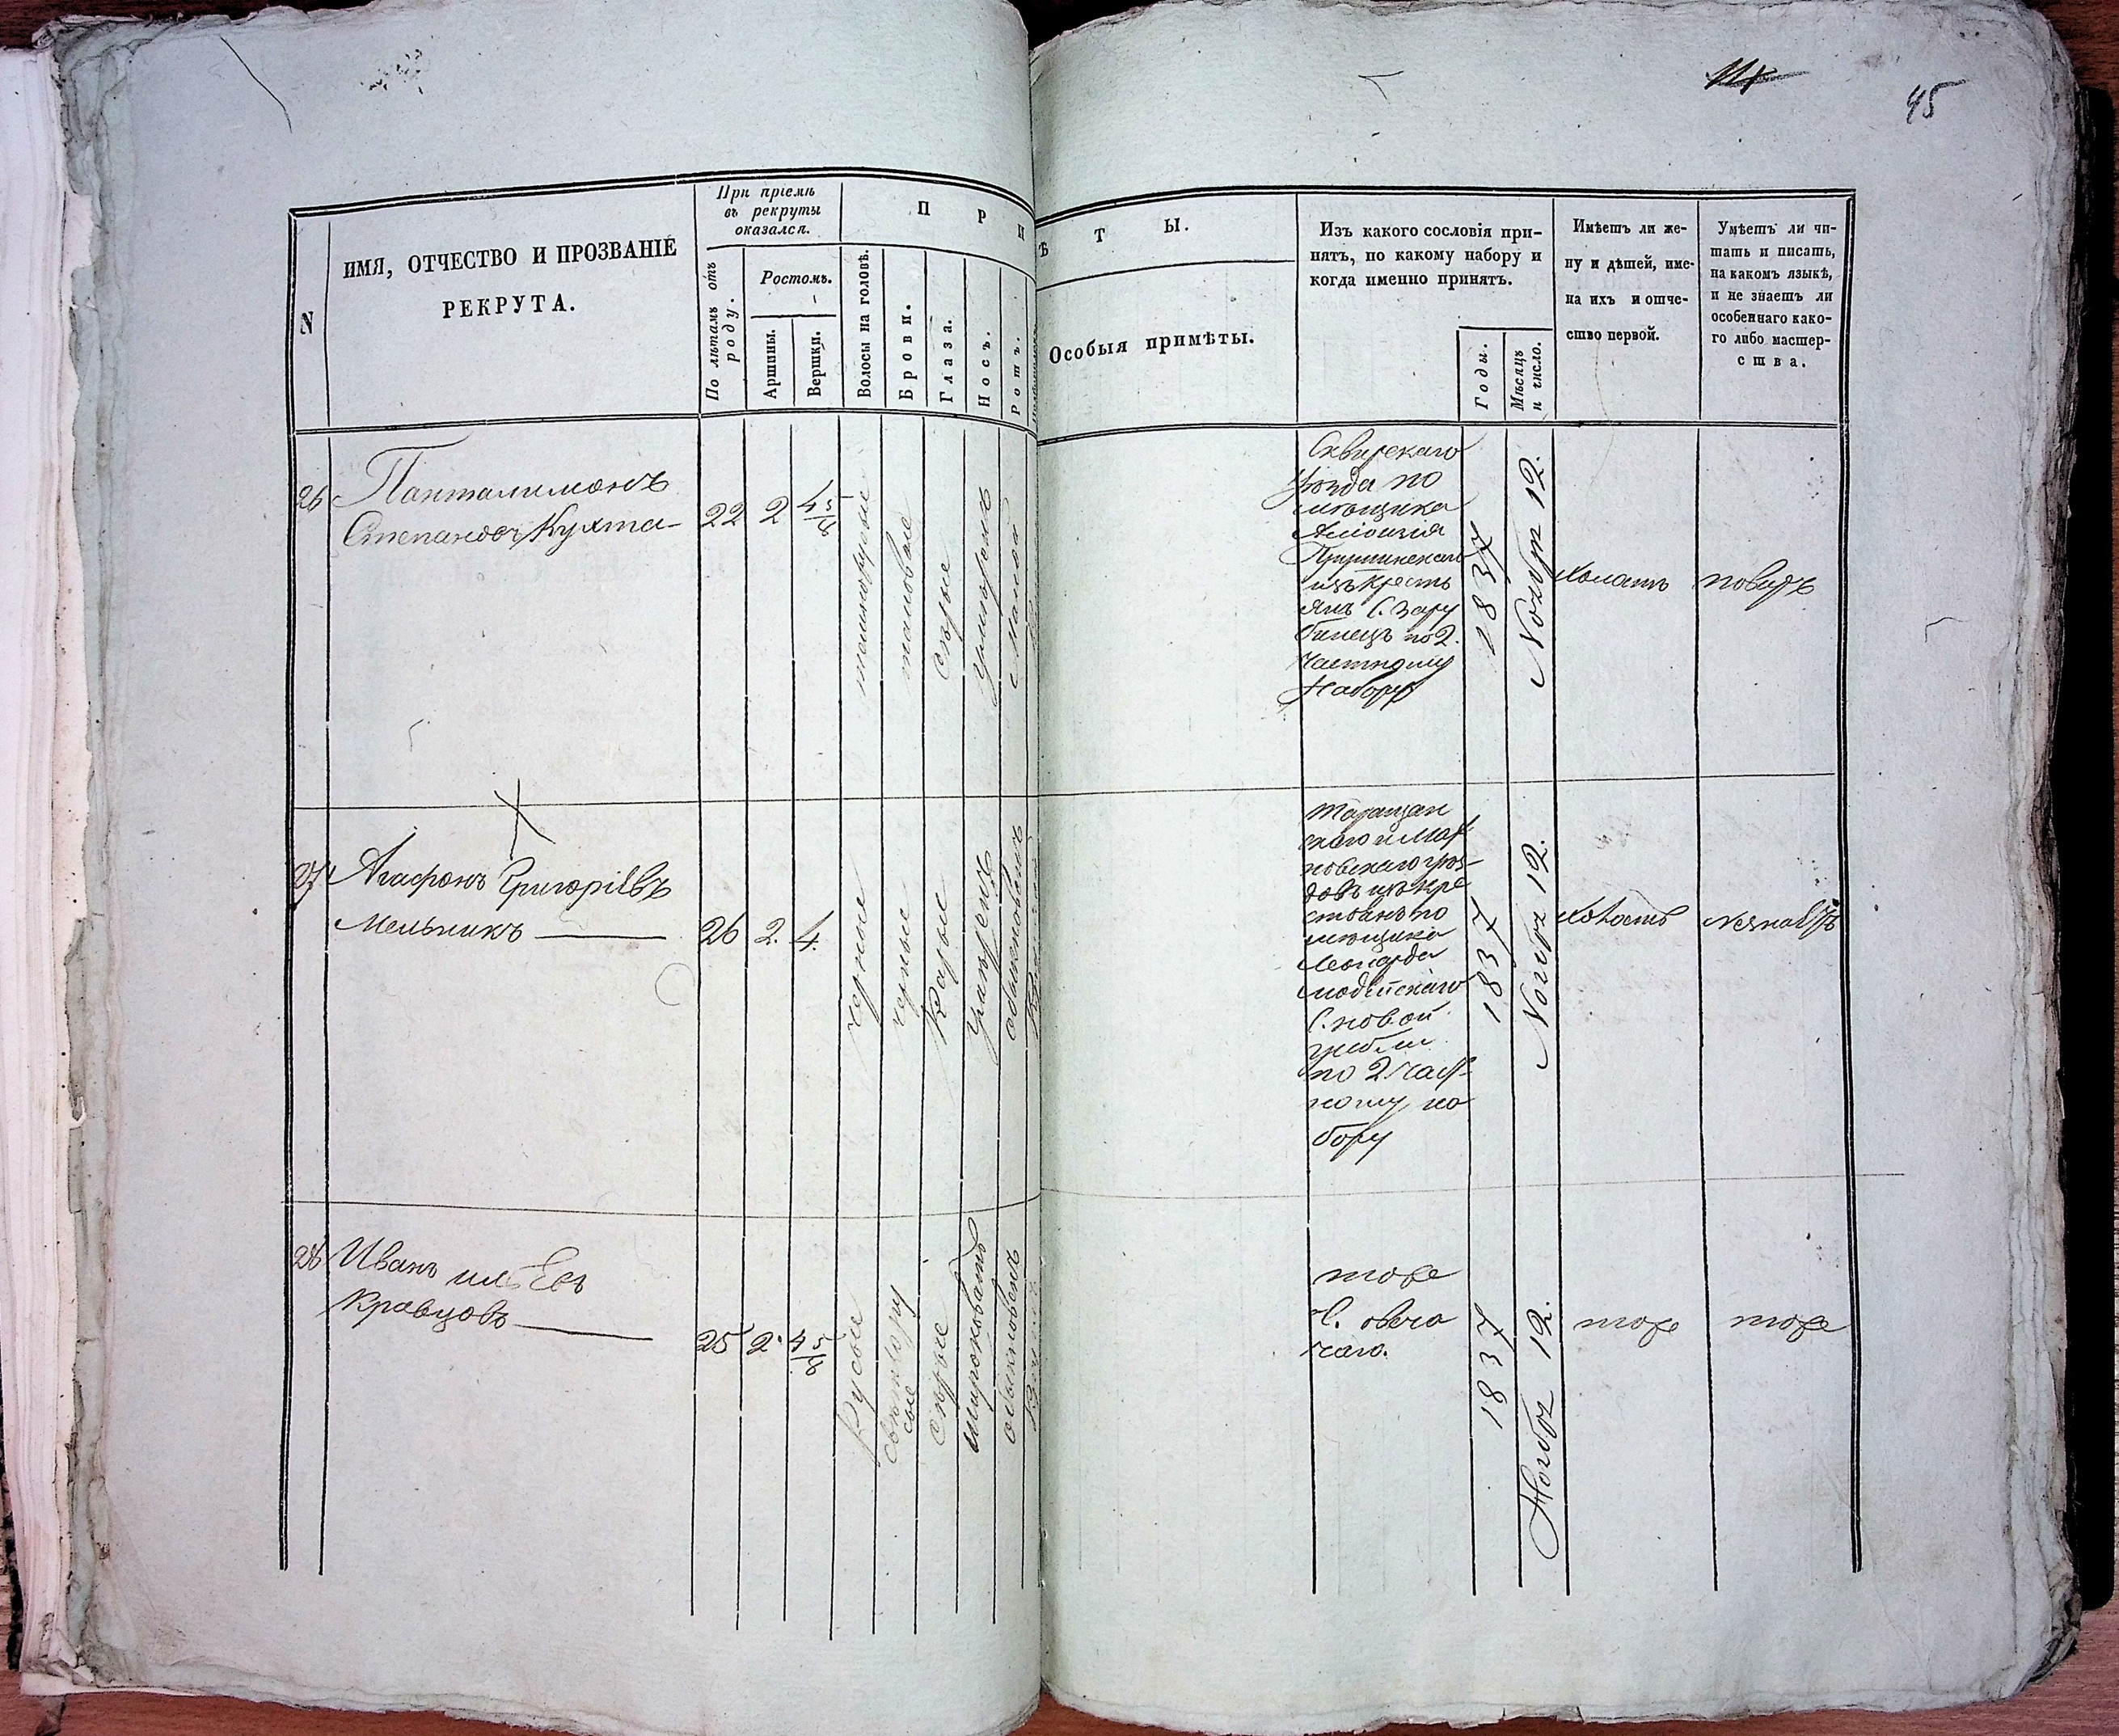 45
N
ИМЯ, ОТЧЕСТВО И ПРОЗВАНІЕ
РЕКРУТА.
При пріемѣ
въ рекруты
оказался.
По лѣтамъ отъ
роду.
Ростомъ.
Аршины.
Вершки.
П Р И
Волосы на головѣ.
Брови.
Глаза.
Носъ.
Ротъ.
Ѣ Т Ы.
Особыя примѣты.
Изъ какого сословія при-
нятъ, по какому набору и
когда именно принятъ.
Годы.
Мѣсяцъ
и число.
Имѣетъ ли же-
ну и дѣтей, име-
на ихъ и отче-
ство первой.
Умѣетъ ли чи-
тать и писать,
на какомъ языкѣ,
и не знаетъ ли
особеннаго како-
го либо мастер-
ства.
26
Панталимонъ
Степановъ Кухта
22
2
4 5/8
темнорусые
таковые
сѣрые
умѣренъ
малой
Сквирскаго
уѣзда по
мѣщика
изъ кресть
янъ С. Зару
бинецъ по 2.
частному
Набору
1837
Ноября 12.
холостъ
поваръ
27
Агафонъ Григоріевъ
Мельникъ
26
2.
4.
черные
черные
Карые
умѣренъ
обыкновенъ
Таращан
скаго и
довъ изъ кре
стьянъ по
мѣщика
Леонарда
С. новой
гребли
по 2. част
ному на
бору
1837
Ноября 12.
холостъ
28
Иванъ
Кравцовъ
25
2
4 5/8
Русые
свѣтлору
сые
Сѣрые
широковатъ
обыкновенъ
тоже
С. овеча
чаго.
1837
Ноября 12.
тоже
тоже